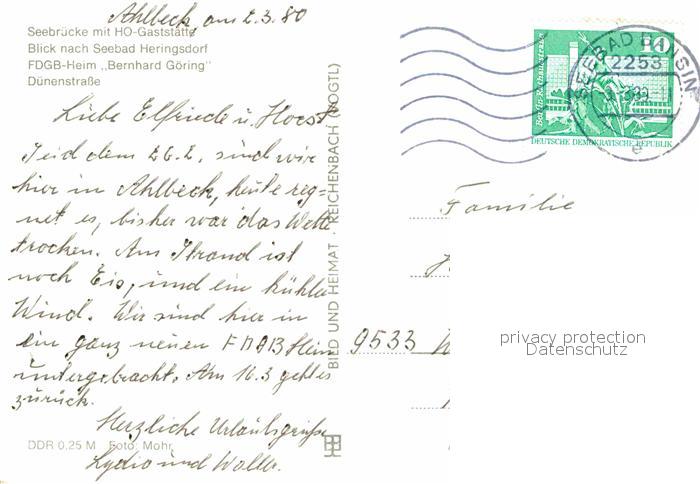 Ahlbeck, am 2.3.80
Seebrücke mit HO-Gaststätte
Blick nach Seebad Heringsdorf
FDGB-Heim „Bernhard Göring"
Dünenstraße
Liebe Elfriede u. Horst
Seid dem 26.2. sind wir
hier in Ahlbeck, heute reg=
net es, bisher war das Wette
trocken. Am Strand ist
noch Eis, und ein kühler
Wind. Wir sind hier in
ein ganz neuen FDGB Heim
untergebracht. Am 16.3 geht es
zurück.
Herzliche Urlaubsgrüße
Lydia und Walter.
DDR 0,25 M Foto: Mohr
BILD UND HEIMAT REICHENBACH (VOGTL)
10
Berlin, Rathausstraße
DEUTSCHE DEMOKRATISCHE REPUBLIK
SEEBAD BANSIN
2253
e
Familie
9533
privacy protection
Datenschutz